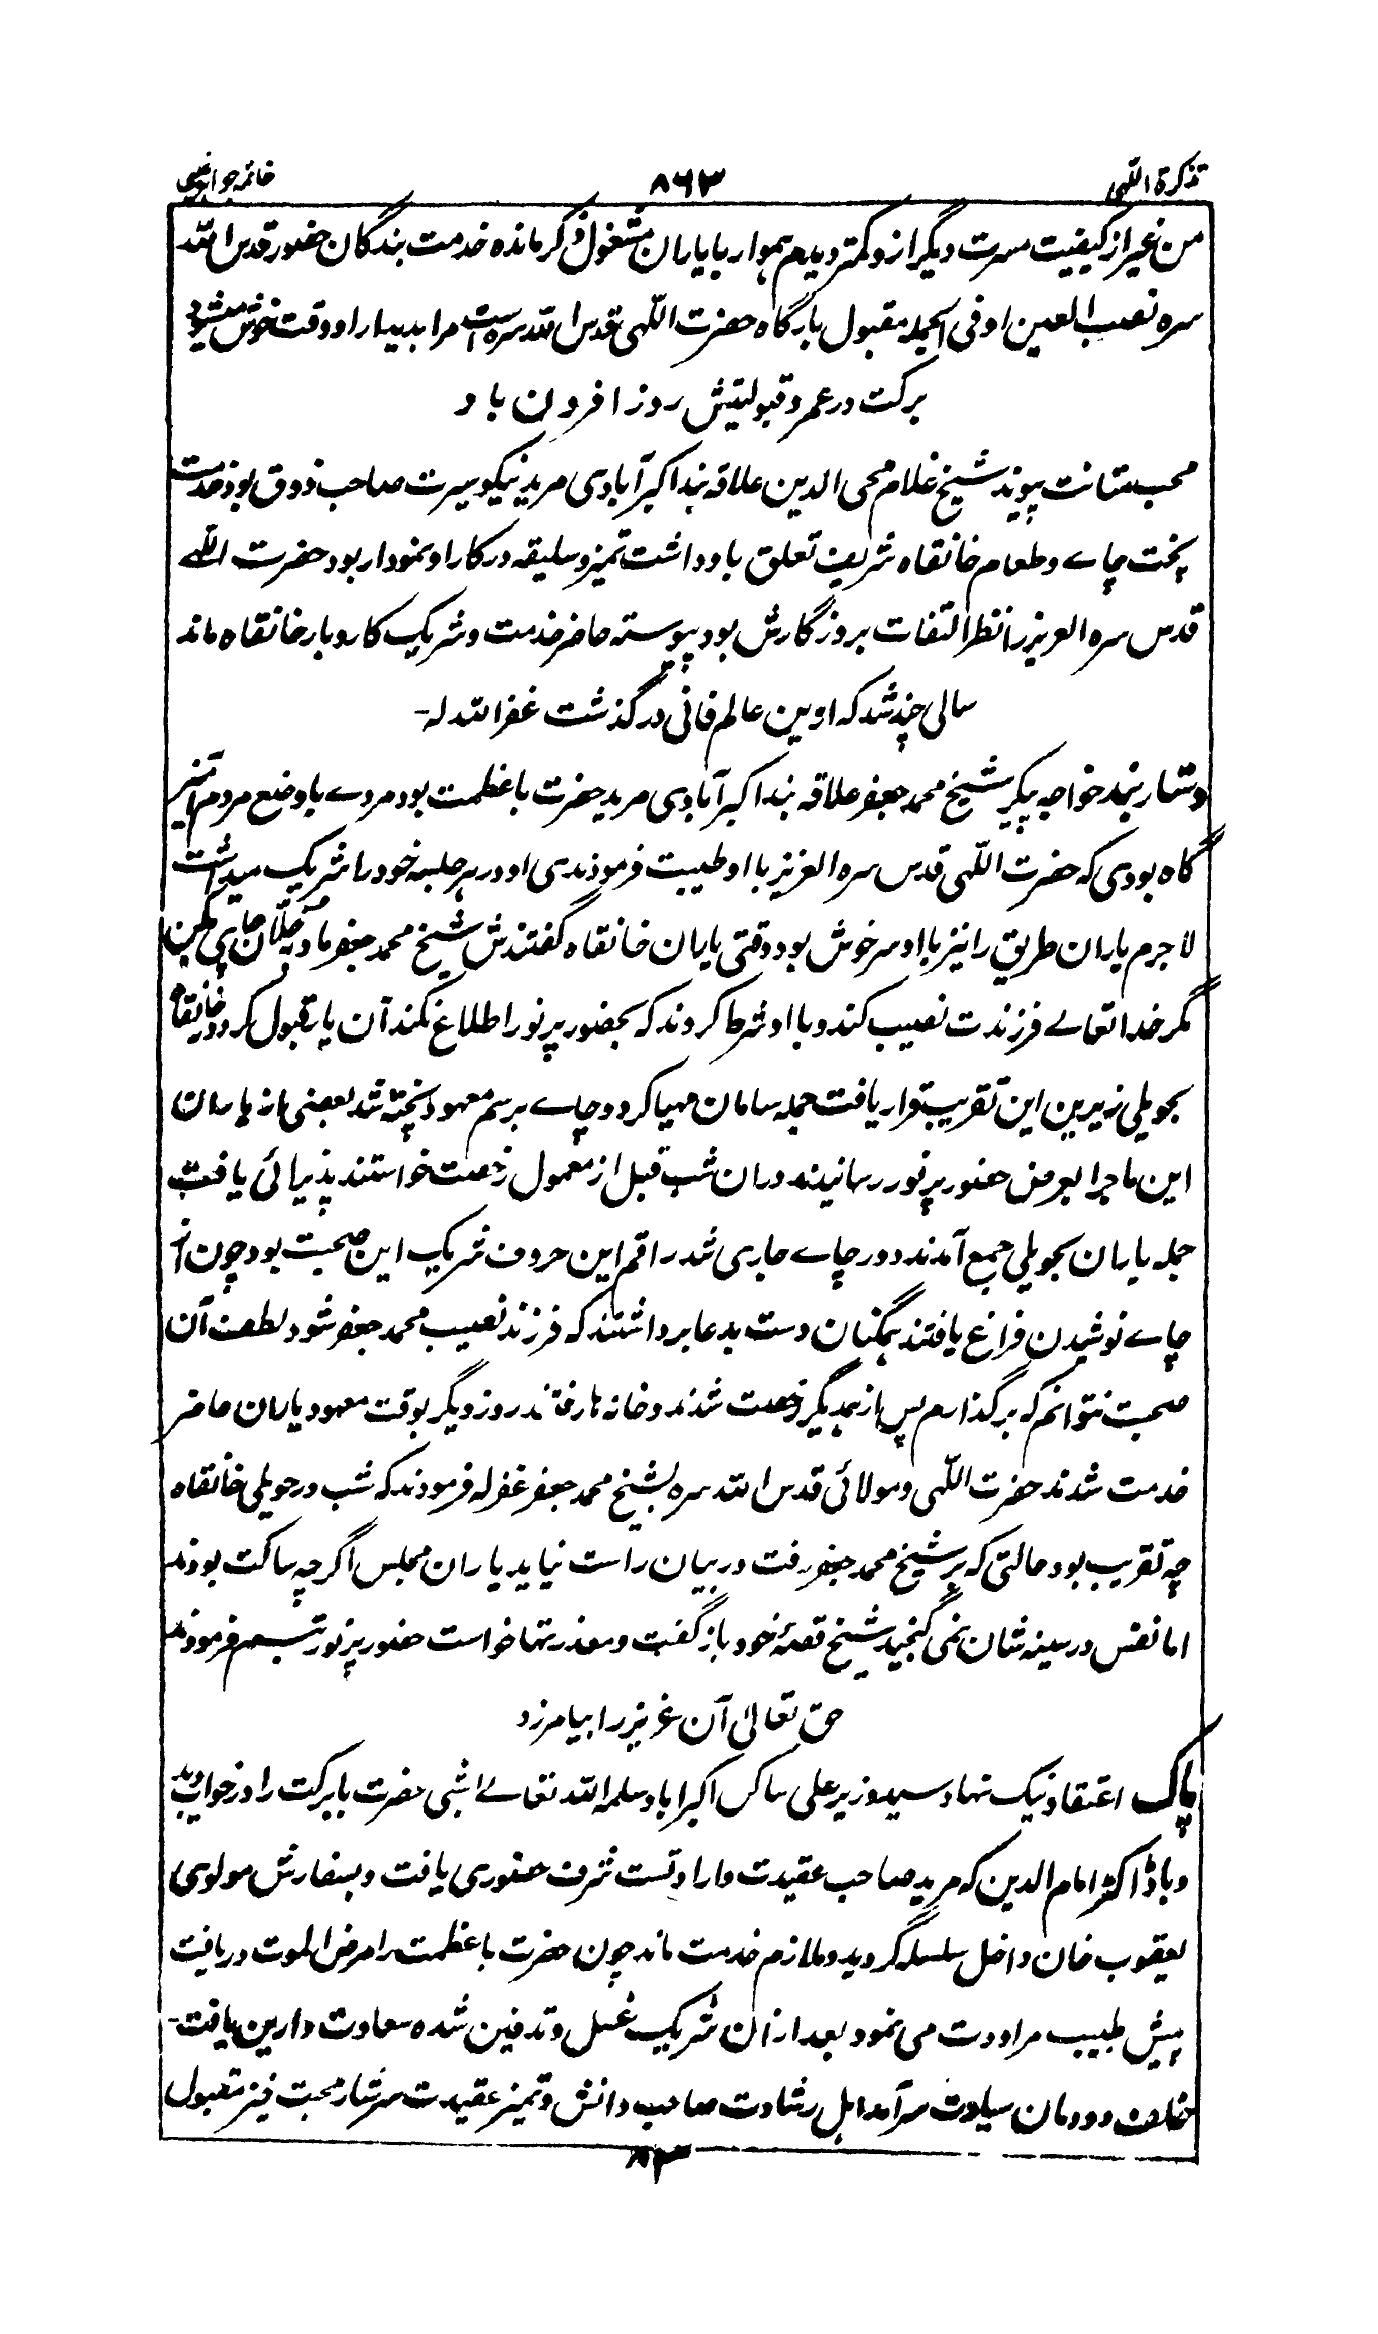 تذکرة اللّٰهی ۸۶۳ خاتمه جواہر غیبی
من غیر از کیفیت مسرت دیگر از و کمتر دیدم ہموار با یاران مشغول ذکر مانده خدمت بندگان حضور قدس اللہ
سره نصب العین او فی الجملہ مقبول بارگاه حضرت اللّٰهی قدس اللہ سره است مرا بدیدار او وقت خوش میشود
برکت در عمر و قبولیتش روز افزون باد
محبت متانت پیوند شیخ غلام محی الدین علاقہ بند اکبرآبادی مرید نیکو سیرت صاحب ذوق بود خدمت
پخت چاے و طعام خانقاه شریف تعلق باو داشت تمیز و سلیقہ در کار او نمودار بود حضرت اللّٰهی
قدس سره العزیز را نظر التفات بروزگارش بود پیوستہ حاضر خدمت و شریک کاروبار خانقاه ماند
سالی چند شد که او بین عالم فانی درگذشت غفر اللہ لہ-
دستار بند خواجہ پیکر شیخ محمد جعفر علاقہ بند اکبرآبادی مرید حضرت باعظمت بود مردے باوضع مردم آمیز
گاه بودی که حضرت اللّٰهی قدس سره العزیز با او طیبت فرمودندی او در ہر جلسہ خود را شریک میداشت
لاجرم یاران طریق را نیز با او سر خوش بود وقتی یاران خانقاه گفتندش شیخ محمد جعفر ما و چاے بکن
مگر خدا تعالے فرزندت نصیب کند و با او شرط کردند که بحضور پرنور اطلاع نکند آن یار قبول کرد و در خانقاه
بحویلی زیرین این تقریب قرار یافت جملہ سامان مہیا کرد و چاے برسم معہود پختہ شد بعضی از یاران
این ماجرا بعرض حضور پرنور رسانیدند دران شب قبل از معمول رخصت خواستند پذیرائی یافت
جملہ یاران بحویلی جمع آمدند دور چاے جاری شد راقم این حروف شریک این صحبت بود چون از
چاے نوشیدن فراغ یافتند ہمگنان دست بدعا برداشتند که فرزند نصیب محمد جعفر شود لطف آن
صحبت نتوانم که برگذارم پس از ہمدیگر رخصت شدند و خانہ ہا رفتند روز دیگر بوقت معہود یاران حاضر
خدمت شدند حضرت اللّٰهی و مولائی قدس اللہ سره بشیخ محمد جعفر غفر لہ فرمودند که شب در حویلی خانقاه
چہ تقریب بود حالتی که بر شیخ محمد جعفر رفت در بیان راست نیاید یاران مجلس اگرچہ ساکت بودند
اما نفس در سینہ شان نمی گنجید شیخ قصۂ خود باز گفت و معذرتہا خواست حضور پرنور تبسم فرمودند
حق تعالیٰ آن عزیز را بیامرزد
پاک اعتقاد نیک نہاد سید وزیر علی ساکن اکبراباد سلمہ اللہ تعالے شبی حضرت بابرکت را در خواب دید
و با ڈاکٹر امام الدین که مرید صاحب عقیدت و ارادتست شرف حضوری یافت و بسفارش مولوی
یعقوب خان داخل سلسلہ گردید و ملازم خدمت ماند چون حضرت باعظمت را مرض الموت دریافت
پیش طبیب مراودت می نمود بعد ازان شریک غسل و تدفین شده سعادت دارین یافت-
خلف دودمان سیادت سرآمد اہل رشادت صاحب دانش و تمیز عقیدت سرشار محبت خیز مقبول